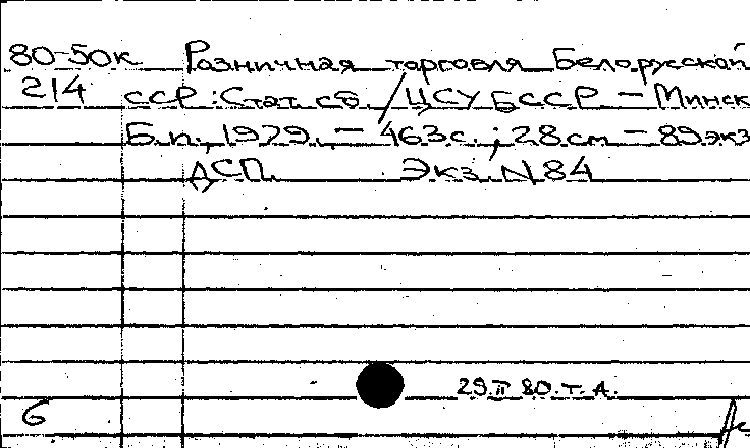 80-50к Розничная торговля Белорусской
214 ССР : Стат. сб. / ЦСУ БССР — Минск
Б.и., 1979. — 463 с. ; 28 см — 89 экз
ДСП. Экз. N 84
29.II 80. т. А.
6